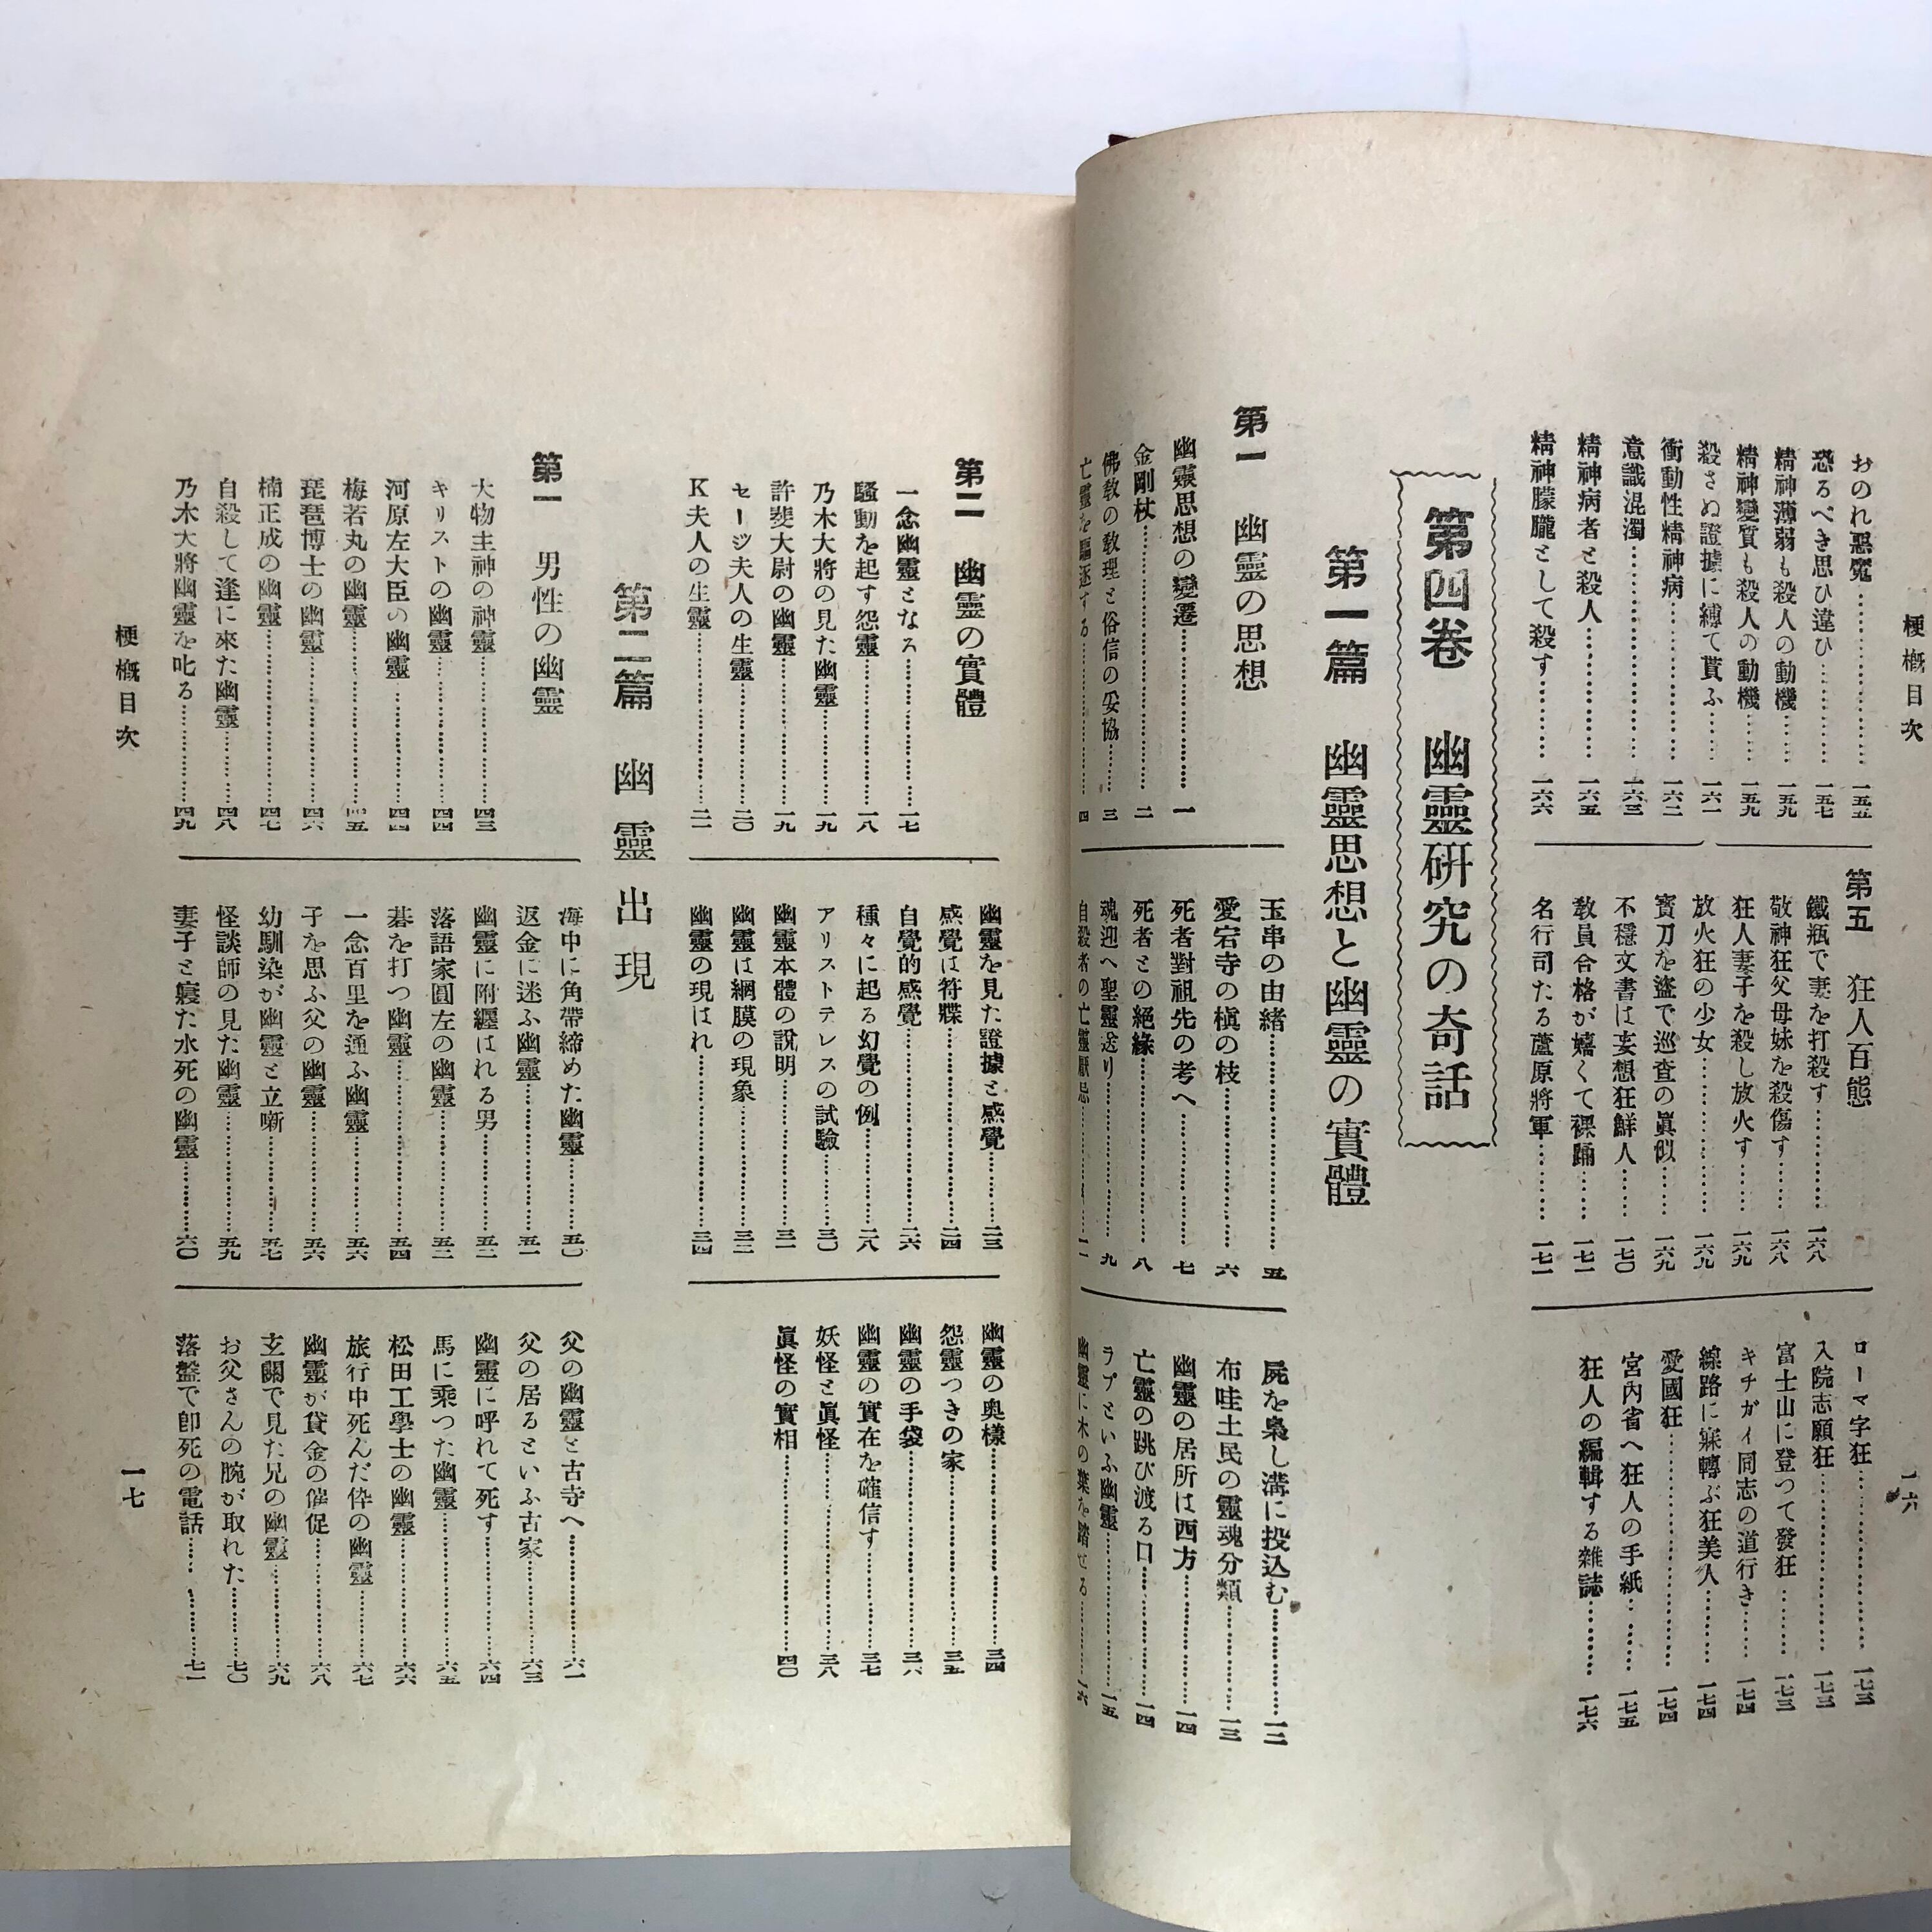 梗概目次
一六
おのれ惡魔……一五五
恐るべき思ひ違ひ……一五七
精神薄弱も殺人の動機……一五九
精神變質も殺人の動機……一五九
殺さぬ證據に縛て貰ふ……一六一
衝動性精神病……一六二
意識混濁……一六三
精神病者と殺人……一六五
精神朦朧として殺す……一六六
第五 狂人百態
鐵瓶で妻を打殺す……一六八
敬神狂父母妹を殺傷す……一六八
狂人妻子を殺し放火す……一六九
放火狂の少女……一六九
寶刀を盗で巡査の眞似……一六九
不穩文書は妄想狂鮮人……一七〇
敎員合格が嬉くて裸踊……一七一
名行司たる蘆原將軍……一七一
ローマ字狂……一七三
入院志願狂……一七三
富士山に登つて發狂……一七三
キチガイ同志の道行き……一七四
線路に寐轉ぶ狂美人……一七四
愛國狂……一七四
宮內省へ狂人の手紙……一七五
狂人の編輯する雜誌……一七六
第四卷 幽靈研究の奇話
第一篇 幽靈思想と幽靈の實體
第一 幽靈の思想
幽靈思想の變遷……一
金剛杖……二
佛敎の敎理と俗信の妥協……三
亡靈を驅逐する……四
玉串の由緒……五
愛宕寺の槇の枝……六
死者對祖先の考へ……七
死者との絕緣……八
魂迎へ聖靈送り……九
自殺者の亡靈厭忌……一一
屍を梟し溝に投込む……一二
布哇土民の靈魂分類……一三
幽靈の居所は西方……一四
亡靈の跳び渡る口……一四
ラプといふ幽靈……一五
幽靈に木の葉を踏せる……一六
第二 幽靈の實體
一念幽靈となる……一七
騷動を起す怨靈……一八
乃木大將の見た幽靈……一九
許斐大尉の幽靈……一九
セージ夫人の生靈……二〇
K夫人の生靈……二一
幽靈を見た證據と感覺……二三
感覺は符牒……二四
自覺的感覺……二六
種々に起る幻覺の例……二八
アリストテレスの試驗……三〇
幽靈本體の說明……三一
幽靈は網膜の現象……三二
幽靈の現はれ……三四
幽靈の奥樣……三四
怨靈つきの家……三五
幽靈の手袋……三六
幽靈の實在を確信す……三七
妖怪と眞怪……三八
眞怪の實相……四〇
第二篇 幽靈出現
第一 男性の幽靈
大物主神の神靈……四三
キリストの幽靈……四四
河原左大臣の幽靈……四四
梅若丸の幽靈……四五
琵琶博士の幽靈……四六
楠正成の幽靈……四七
自殺して逢に來た幽靈……四八
乃木大將幽靈を叱る……四九
海中に角帶締めた幽靈……五〇
返金に迷ふ幽靈……五一
幽靈に附纒はれる男……五二
落語家圓左の幽靈……五三
碁を打つ幽靈……五四
一念百里を通ふ幽靈……五六
子を思ふ父の幽靈……五六
幼馴染が幽靈と立噺……五七
怪談師の見た幽靈……五九
妻子と寢た水死の幽靈……六〇
父の幽靈と古寺へ……六一
父の居るといふ古家……六三
幽靈に呼れて死す……六四
馬に乘つた幽靈……六五
松田工學士の幽靈……六六
旅行中死んだ伜の幽靈……六七
幽靈が貸金の催促……六八
玄關で見た兄の幽靈……六九
お父さんの腕が取れた……七〇
落盤で卽死の電話……七一
梗概目次
一七